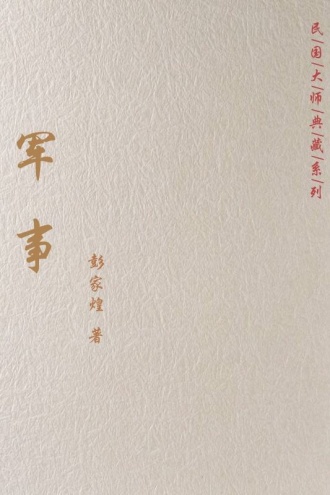 民国大师典藏系列
军事
彭家煌 著